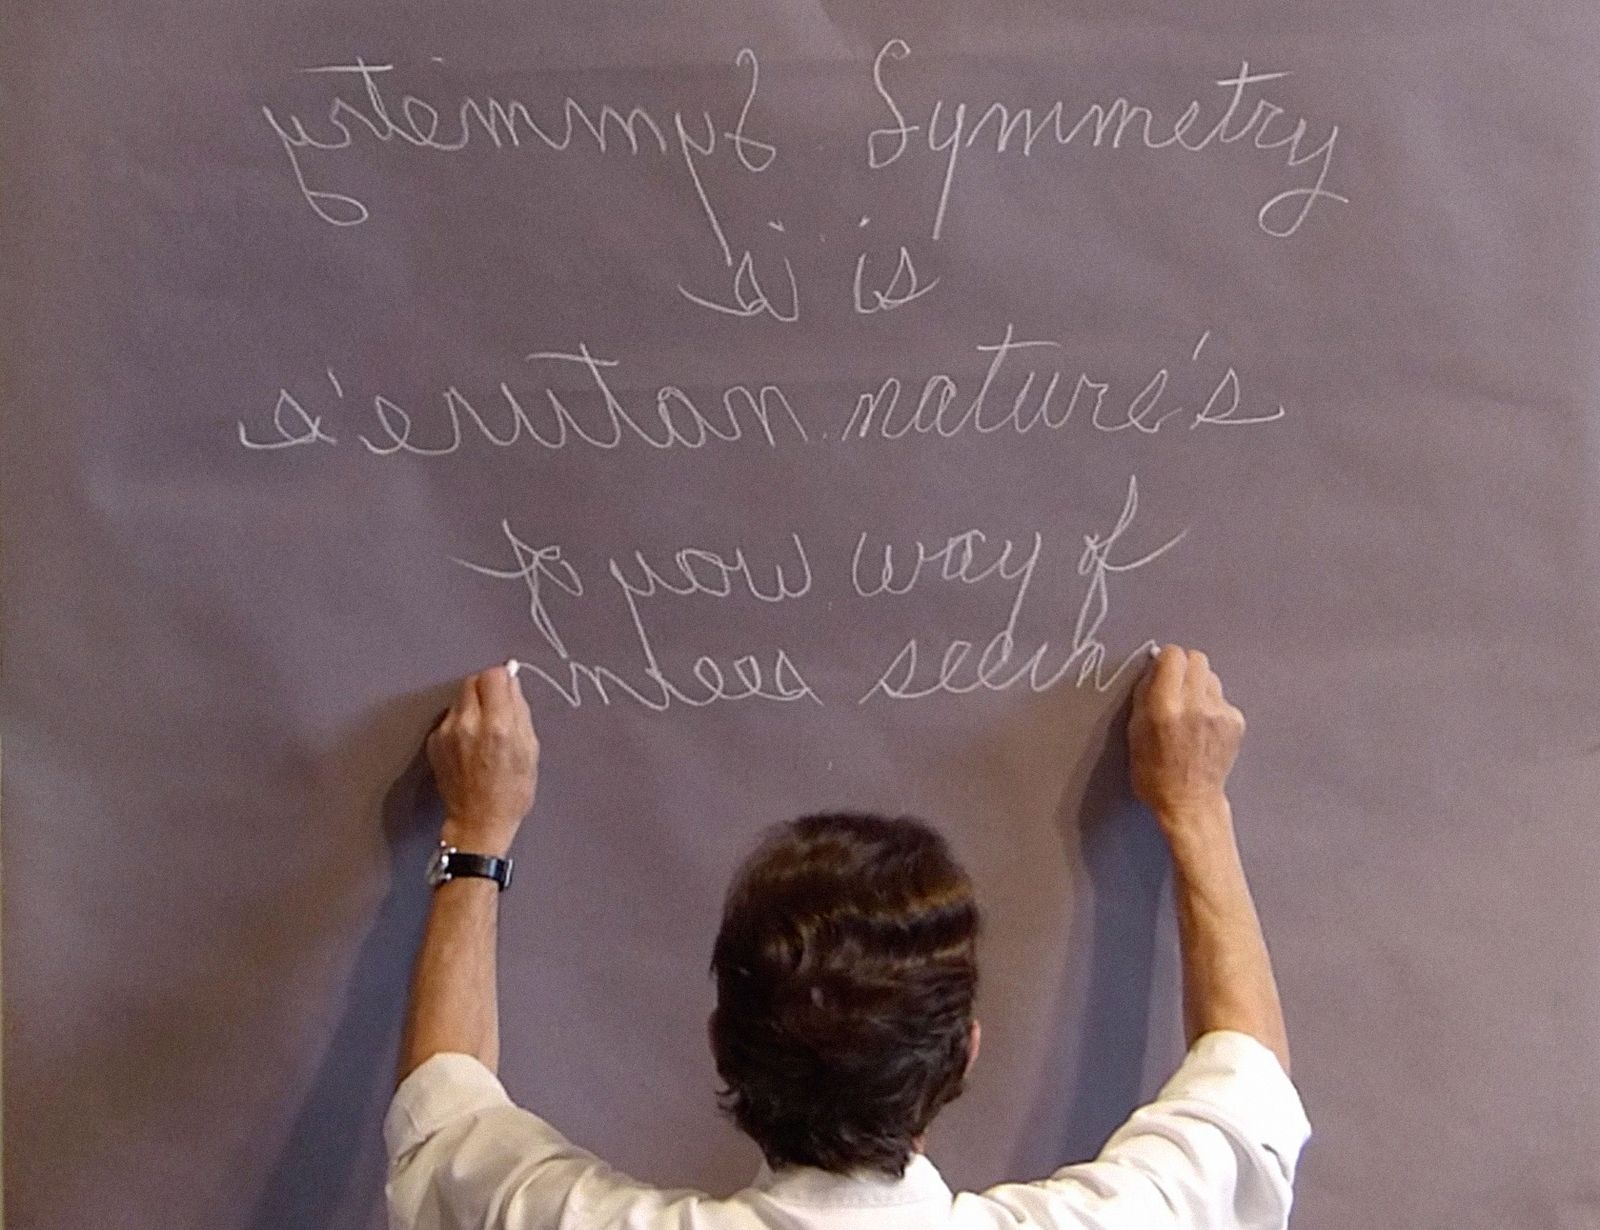 Symmetry
is
nature's
way of
seein